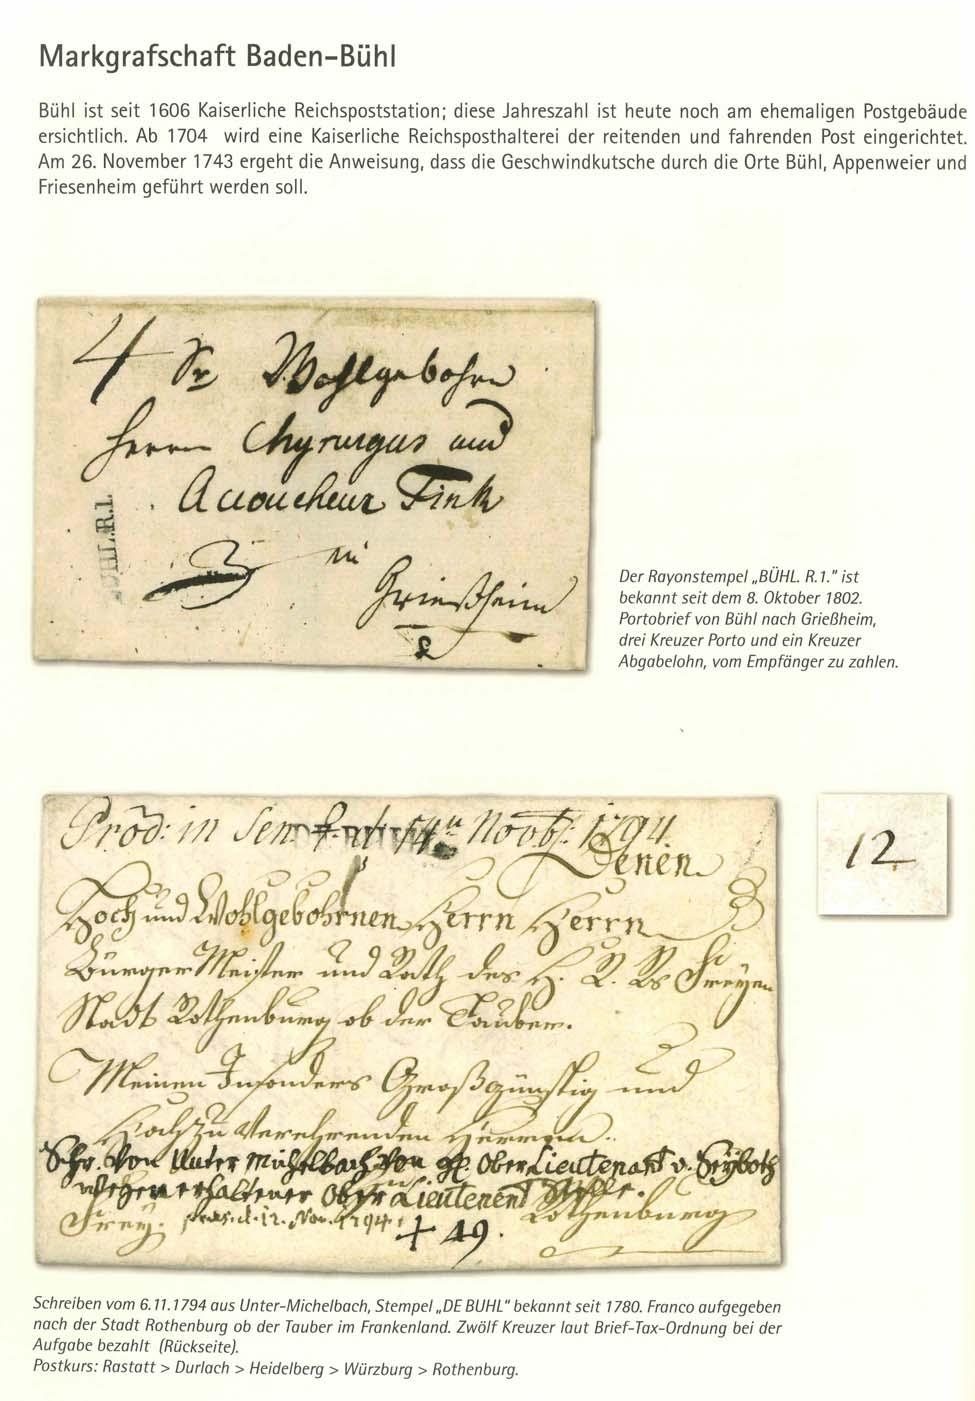 Markgrafschaft Baden-Bühl
Bühl ist seit 1606 Kaiserliche Reichspoststation; diese Jahreszahl ist heute noch am ehemaligen Postgebäude
ersichtlich. Ab 1704 wird eine Kaiserliche Reichsposthalterei der reitenden und fahrenden Post eingerichtet.
Am 26. November 1743 ergeht die Anweisung, dass die Geschwindkutsche durch die Orte Bühl, Appenweier und
Friesenheim geführt werden soll.
4 Sr Wohlgebohrn
Herrn Chyrurgus und
Accoucheur Fink
BÜHL.R.1.
3 in
Grießheim
Der Rayonstempel „BÜHL. R.1." ist
bekannt seit dem 8. Oktober 1802.
Portobrief von Bühl nach Grießheim,
drei Kreuzer Porto und ein Kreuzer
Abgabelohn, vom Empfänger zu zahlen.
Prod: in Sen: d. 14n Novbr: 1794.
Denen
Hoch und Wohlgebohrnen Herrn Herrn
Bürger Meister und Rath des H. R. Rs Freyen
Stadt Rothenburg ob der Tauber.
12
Meinen Insonders Großgünstig und
Hochzu Verehrenden Herren.
Schr. Von Unter Michelbach Von H. OberLieutenant v. Seyboth
wegen erhaltener Ober Lieutenent Stelle.
Frey. præs. d. 12. Nov. 1794. Rothenburg
+ 49.
Schreiben vom 6.11.1794 aus Unter-Michelbach, Stempel „DE BUHL" bekannt seit 1780. Franco aufgegeben
nach der Stadt Rothenburg ob der Tauber im Frankenland. Zwölf Kreuzer laut Brief-Tax-Ordnung bei der
Aufgabe bezahlt (Rückseite).
Postkurs: Rastatt > Durlach > Heidelberg > Würzburg > Rothenburg.